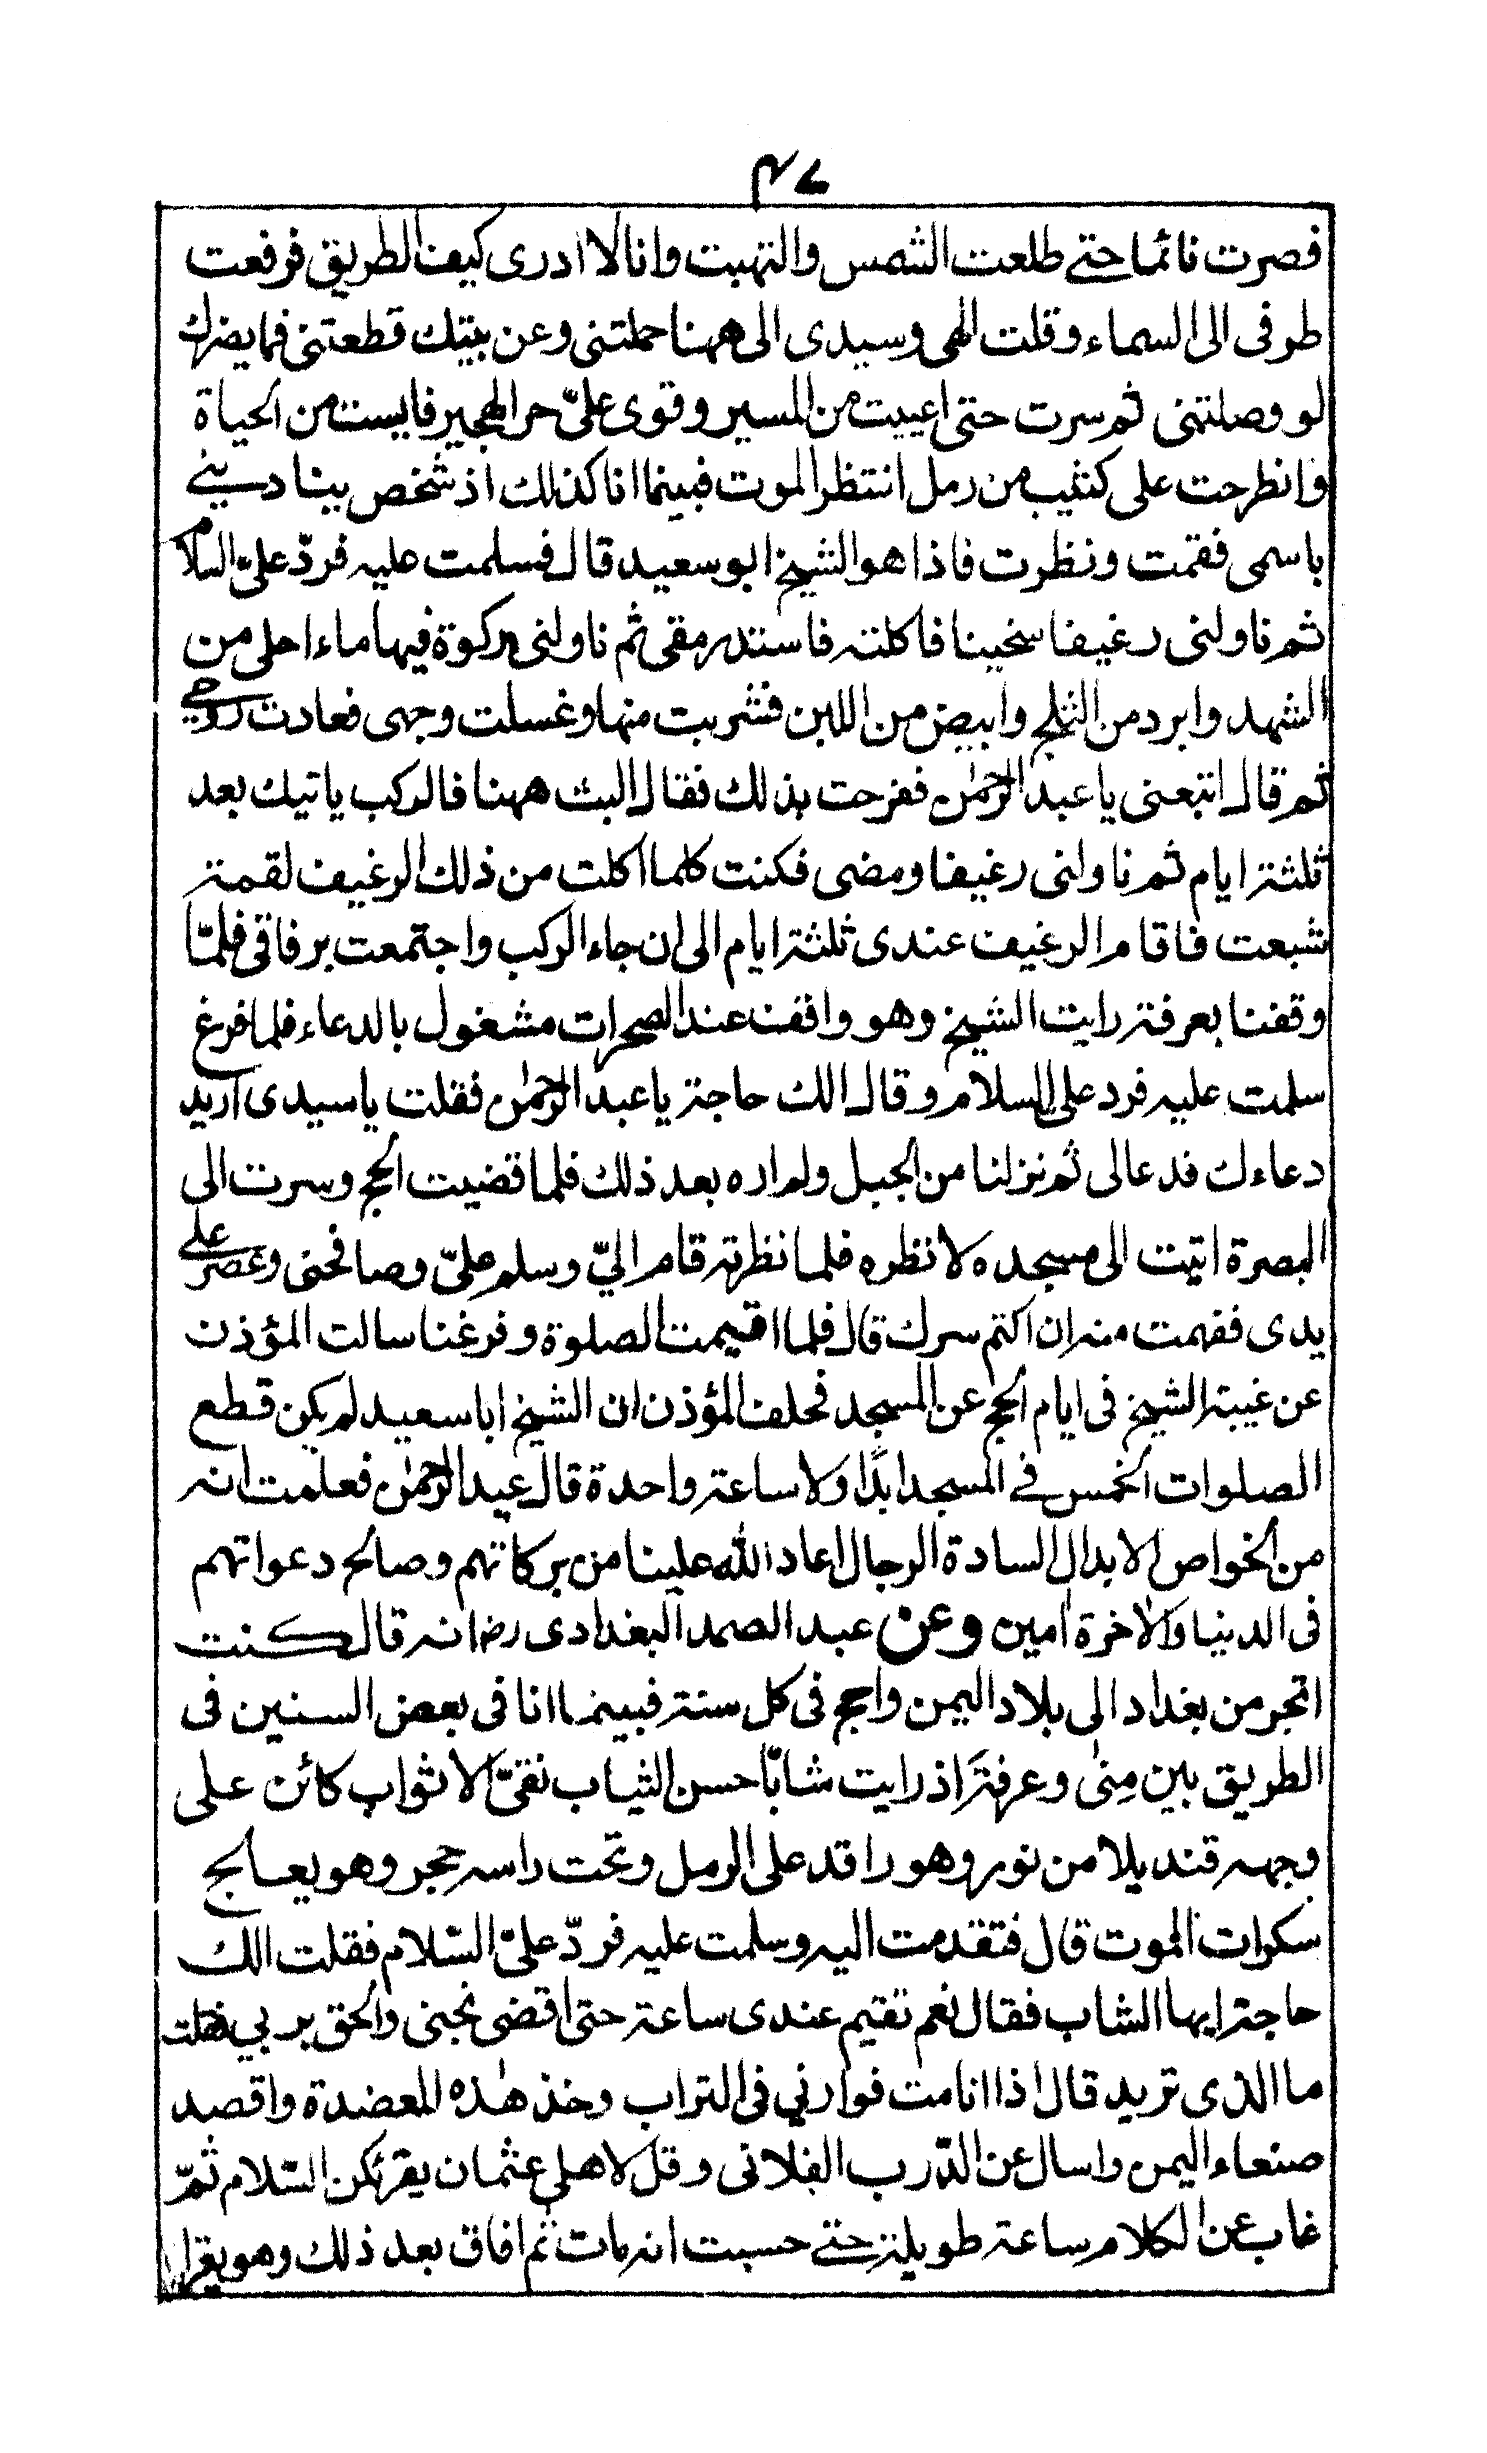 ۴۷
فصرت نائما حتے طلعت الشمس والتهبت وانا لا ادرى كيف الطريق فرفعت
طرفى الى السماء وقلت الهى وسيدى الى ههنا حملتنى وعن بيتك قطعتنى فما يضرك
لو وصلتنى ثم سرت حتى اعييت من المسير وقوى علىّ حر الهجير فايست من الحياة
وانطرحت على كثيب من رمل انتظر الموت فبينما انا كذلك اذ شخص ينادينے
باسمى فقمت ونظرت فاذا هو الشيخ ابو سعيد قال فسلمت عليه فردّ علىّ السلام
ثم ناولنى رغيفا سخينا فاكلته فاستد رمقى ثم ناولنى ركوة فيها ماء احلى من
الشهد وابرد من الثلج وابيض من اللبن فشربت منها وغسلت وجهى فعادت روحے
ثم قال اتتبعنى يا عبد الرحمٰن ففرحت بذلك فقال البث ههنا فالركب ياتيك بعد
ثلثة ايام ثم ناولنى رغيفا ومضى فكنت كلما اكلت من ذلك الرغيف لقمة
شبعت فاقام الرغيف عندى ثلثة ايام الى ان جاء الركب واجتمعت برفاقى فلمّا
وقفنا بعرفة رايت الشيخ وهو واقف عند الصخرات مشغول بالدعاء فلما فرغ
سلمت عليه فرد على السلام وقال الك حاجة يا عبد الرحمٰن فقلت يا سيدى اريد
دعاءك فدعا لى ثم نزلنا من الجبل ولم اره بعد ذلك فلما قضيت الحج وسرت الى
البصرة اتيت الى مسجده لانظره فلما نظرته قام اليّ وسلم علىّ وصافحنى وعصر علے
يدى ففهمت منه ان اكتم سرك قال فلما اقيمت الصلوة وفرغنا سالت المؤذن
عن غيبة الشيخ فى ايام الحج عن المسجد فحلف المؤذن ان الشيخ ابا سعيد لم يكن قطع
الصلوات الخمس فے المسجد ابدًا ولا ساعة واحدة قال عبد الرحمٰن فعلمت انه
من الخواص الابدال السادة الرجال اعاد الله علينا من بركاتهم وصالح دعواتهم
فى الدنيا والاٰخرة اٰمين وعن عبد الصمد البغدادى رض انه قال كنت
اتجر من بغداد الى بلاد اليمن واحج فى كل سنة فبينما انا فى بعض السنين فى
الطريق بين مِنٰى وعرفةَ اذ رايت شابّا حسن الثياب نقىّ الاثواب كائن على
وجهه قنديلا من نور وهو راقد على الرمل وتحت راسه حجر وهو يعالج
سكرات الموت قال فتقدمت اليه وسلمت عليه فردّ علىّ السّلام فقلت الك
حاجة ايها الشاب فقال نعم تقيم عندى ساعة حتى اقضى نحبى والحق بربي فقلت
ما الذى تريد قال اذا انا مت فوارني فى التراب وخذ هٰذه المعضدة واقصد
صنعاء اليمن واسال عن الدّرب الفلانى وقل لاهلى عثمان يقرئكن السّلام ثمّ
غاب عن الكلام ساعة طويلة حتے حسبت انه مات ثم افاق بعد ذلك وهو يقرا